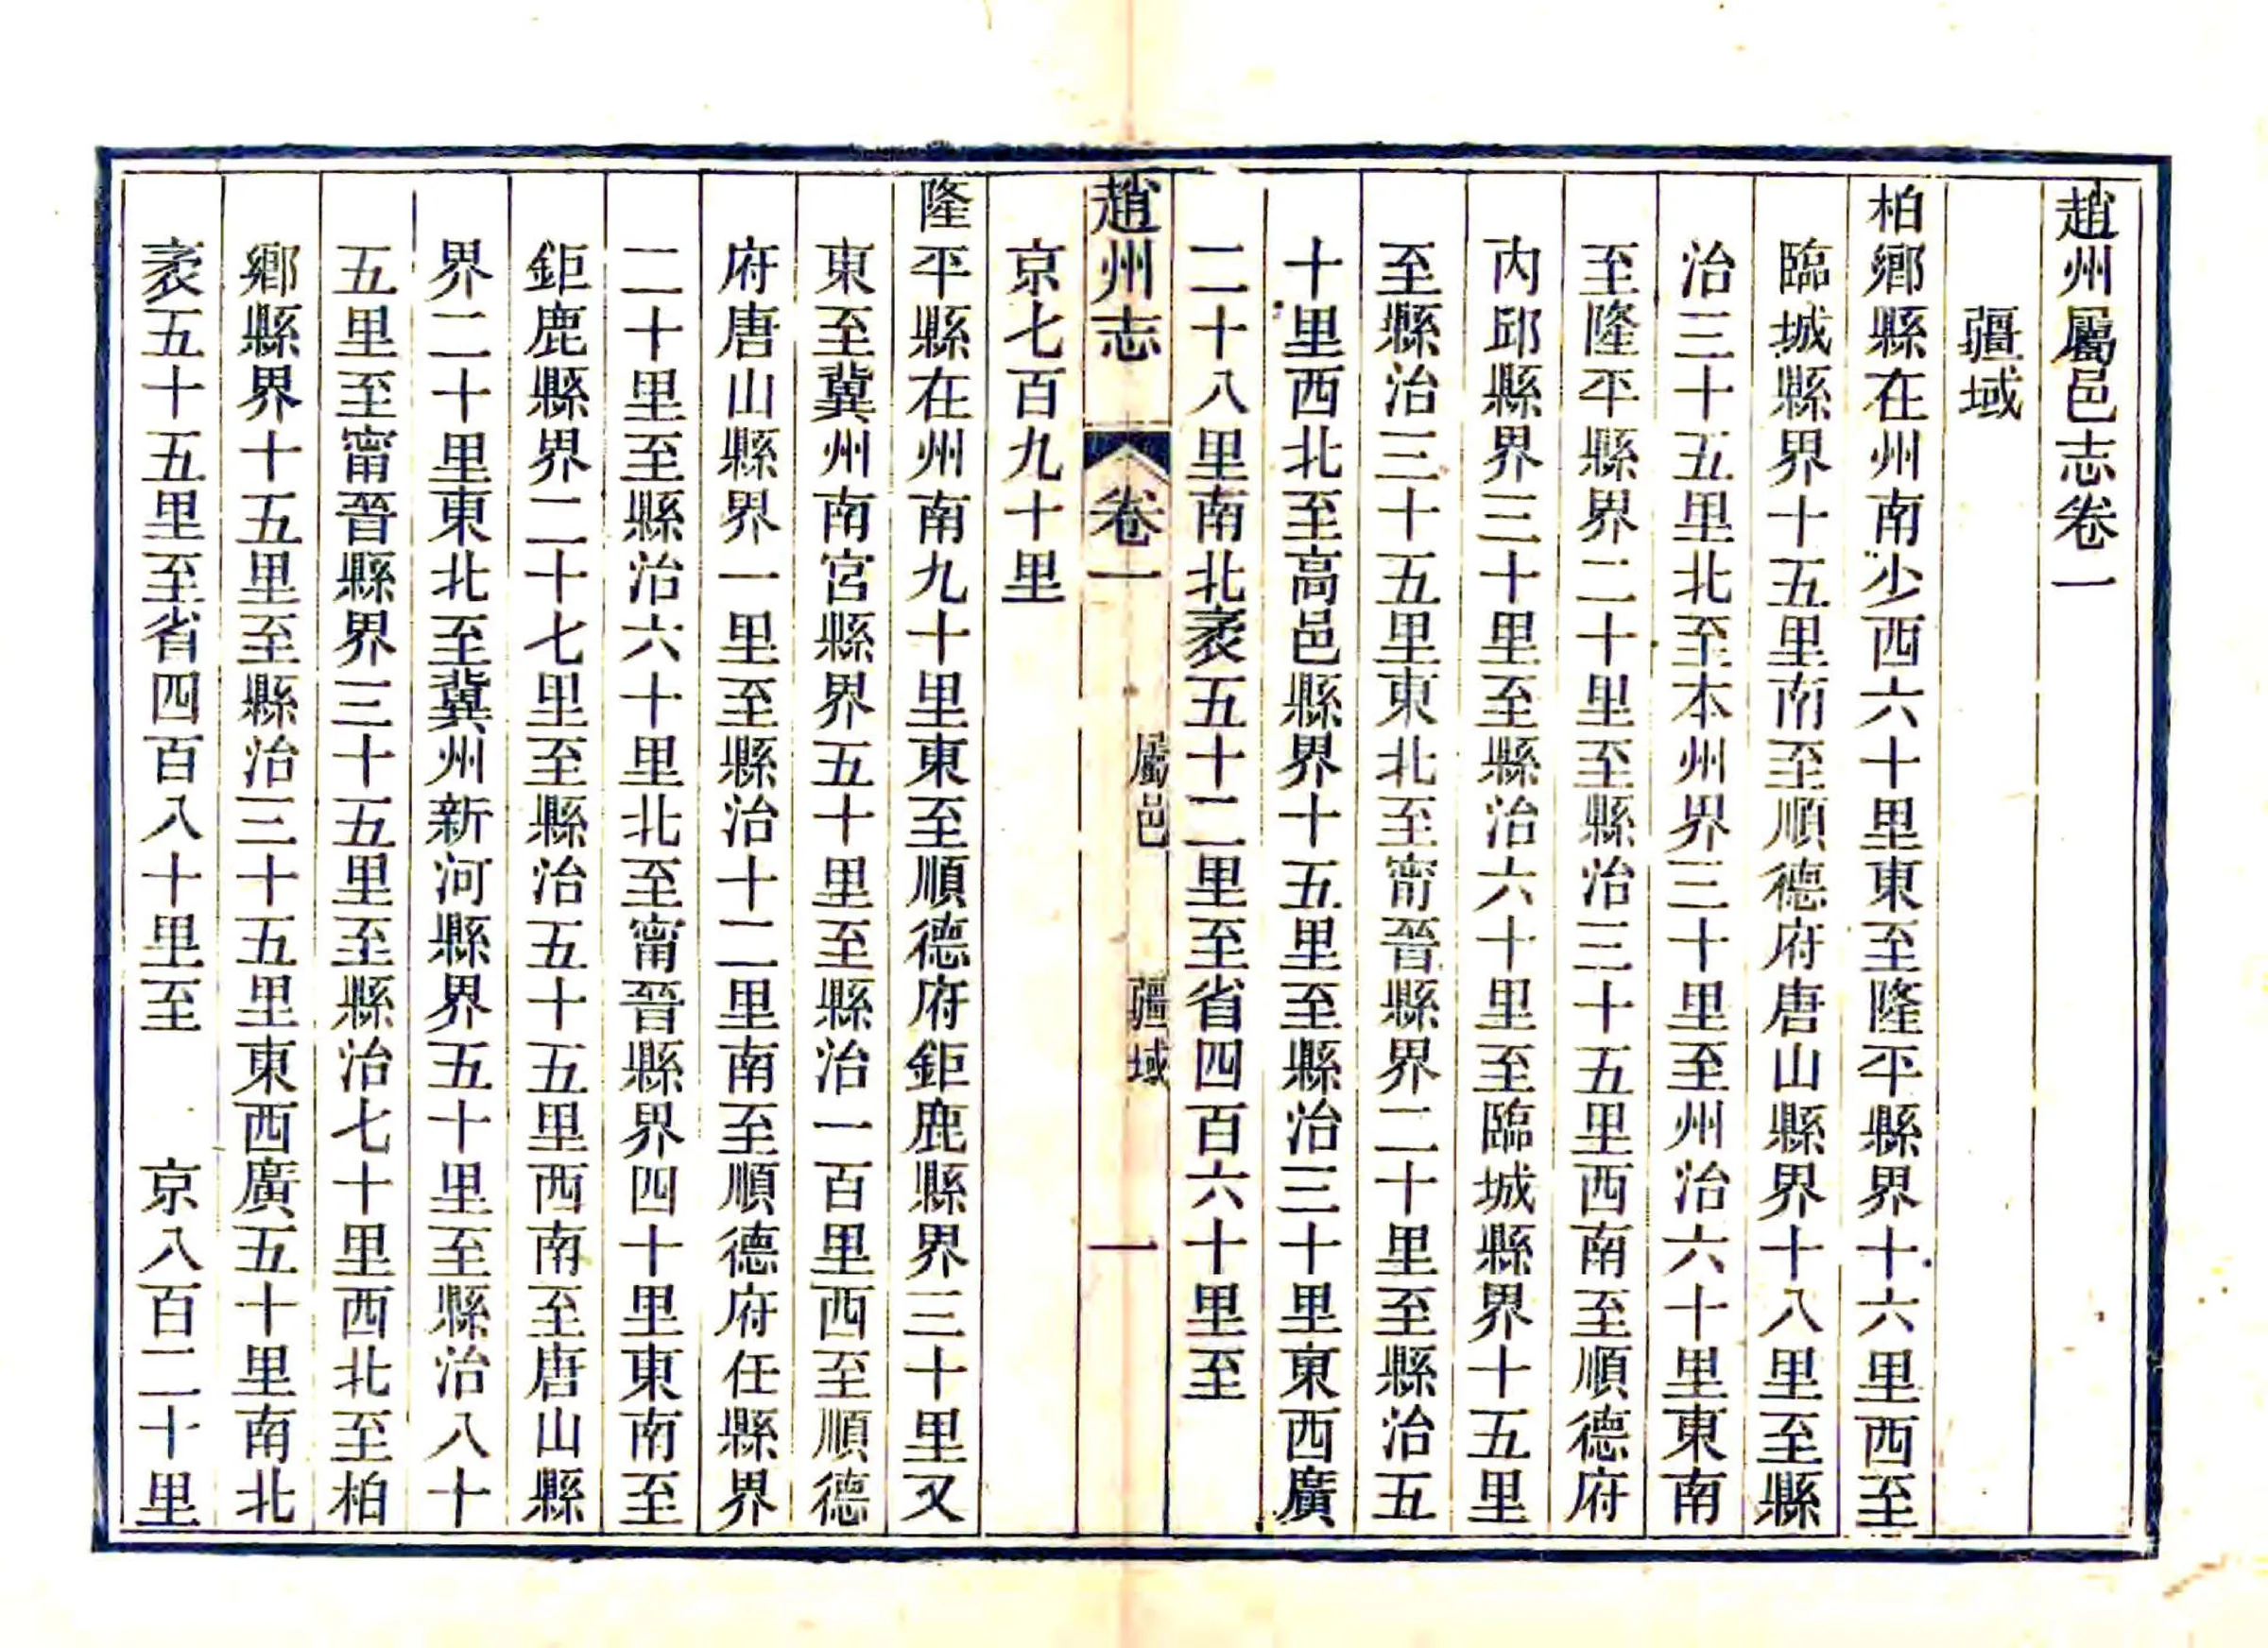 趙州屬邑志卷一
疆域
柏鄉縣在州南少西六十里東至隆平縣界十六里西至
臨城縣界十五里南至順德府唐山縣界十八里至縣
治三十五里北至本州界三十里至州治六十里東南
至隆平縣界二十里至縣治三十五里西南至順德府
內邱縣界三十里至縣治六十里至臨城縣界十五里
至縣治三十五里東北至甯晉縣界二十里至縣治五
十里西北至高邑縣界十五里至縣治三十里東西廣
二十八里南北袤五十二里至省四百六十里至
趙州志 卷一 屬邑 疆域 一
京七百九十里
隆平縣在州南九十里東至順德府鉅鹿縣界三十里又
東至冀州南宮縣界五十里至縣治一百里西至順德
府唐山縣界一里至縣治十二里南至順德府任縣界
二十里至縣治六十里北至甯晉縣界四十里東南至
鉅鹿縣界二十七里至縣治五十五里西南至唐山縣
界二十里東北至冀州新河縣界五十里至縣治八十
五里至甯晉縣界三十五里至縣治七十里西北至柏
鄉縣界十五里至縣治三十五里東西廣五十里南北
袤五十五里至省四百八十里至 京八百二十里